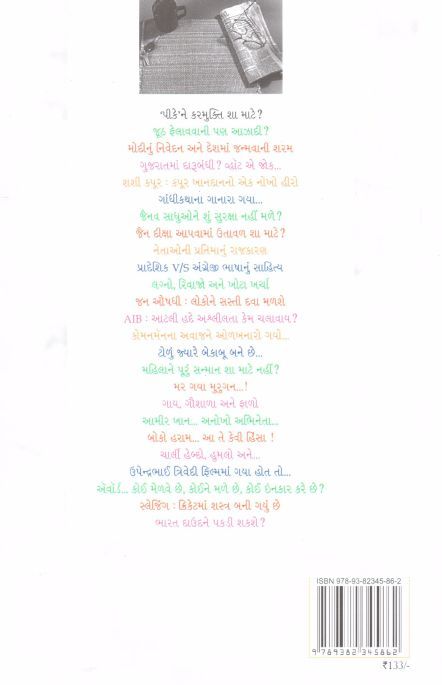 'પીકે'ને કરમુક્તિ શા માટે?
જૂઠ ફેલાવવાની પણ આઝાદી?
મોદીનું નિવેદન અને દેશમાં જન્મવાની શરમ
ગુજરાતમાં દારૂબંધી? વ્હોટ એ જોક...
શશી કપૂર : કપૂર ખાનદાનનો એક નોખો હીરો
ગાંધીકથાના ગાનારા ગયા...
જૈનવ સાધુઓને શું સુરક્ષા નહીં મળે?
જૈન દીક્ષા આપવામાં ઉતાવળ શા માટે?
નેતાઓની પ્રતિમાનું રાજકારણ
પ્રાદેશિક V/S અંગ્રેજી ભાષાનું સાહિત્ય
લગ્નો, રિવાજો અને ખોટા ખર્ચા
જન ઔષધી : લોકોને સસ્તી દવા મળશે
AIB : આટલી હદે અશ્લીલતા કેમ ચલાવાય?
કોમનમેનના અવાજને ઓળખનારો ગયો...
ટોળું જ્યારે બેકાબૂ બને છે...
મહિલાને પૂરું સન્માન શા માટે નહીં?
મર ગવા મુરુગન...!
ગાય, ગૌશાળા અને ફાળો
આમીર ખાન... અનોખો અભિનેતા...
બોકો હરામ... આ તે કેવી હિંસા !
ચાર્લી હેબ્દો, હુમલો અને...
ઉપેન્દ્રભાઈ ત્રિવેદી ફિલ્મમાં ગયા હોત તો...
એવૉર્ડ... કોઈ મેળવે છે, કોઈને મળે છે, કોઈ ઇનકાર કરે છે?
સ્લેજિંગ : ક્રિકેટમાં શસ્ત્ર બની ગયું છે
ભારત દાઉદને પકડી શકશે?
ISBN 978-93-82345-86-2
9 789382 345862
₹133/-